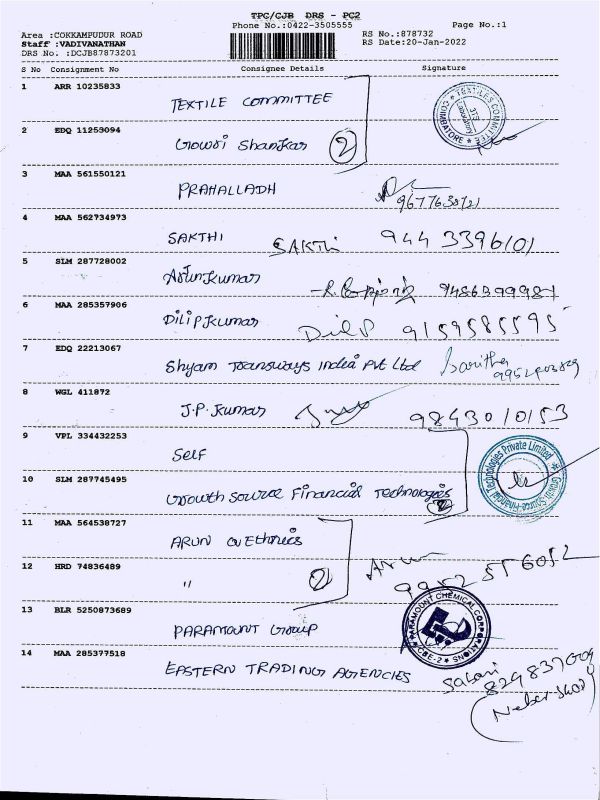 TPC/CJB DRS - PC2
Phone No.:0422-3505555
Page No.:1
Area :COKKAMPUDUR ROAD
RS No.:878732
Staff :VADIVANATHAN
RS Date:20-Jan-2022
DRS No. :DCJB87873201
S No Consignment No Consignee Details Signature
1 ARR 10235833 TEXTILE COMMITTEE
TEXTILES COMMITTEE
COIMBATORE
2 EDQ 11253094 Gowri Shankar 2
3 MAA 561550121 PRAHALLADH
4 MAA 562734973 SAKTHI SAKTHI 944 3396101
5 SLM 287728002 ArunKumar 9486399981
6 MAA 285357906 DilipKumar Dilip 9159585595
7 EDQ 22213067 Shyam Transways India Pvt Ltd
8 WGL 411872 J.P. Kumar 9843010153
9 VPL 334432253 Self
10 SLM 287745495 Growth Source Financial Technologies 2
Growth Source Financial Technologies Private Limited
11 MAA 564538727 ARUN
12 HRD 74836489 " 2 Arun 9952556052
13 BLR 5250873689 PARAMOUNT Group
PARAMOUNT CHEMICAL CORPORATIONS
CBE-2
14 MAA 285377518 EASTERN TRADING AGENCIES
Sabari